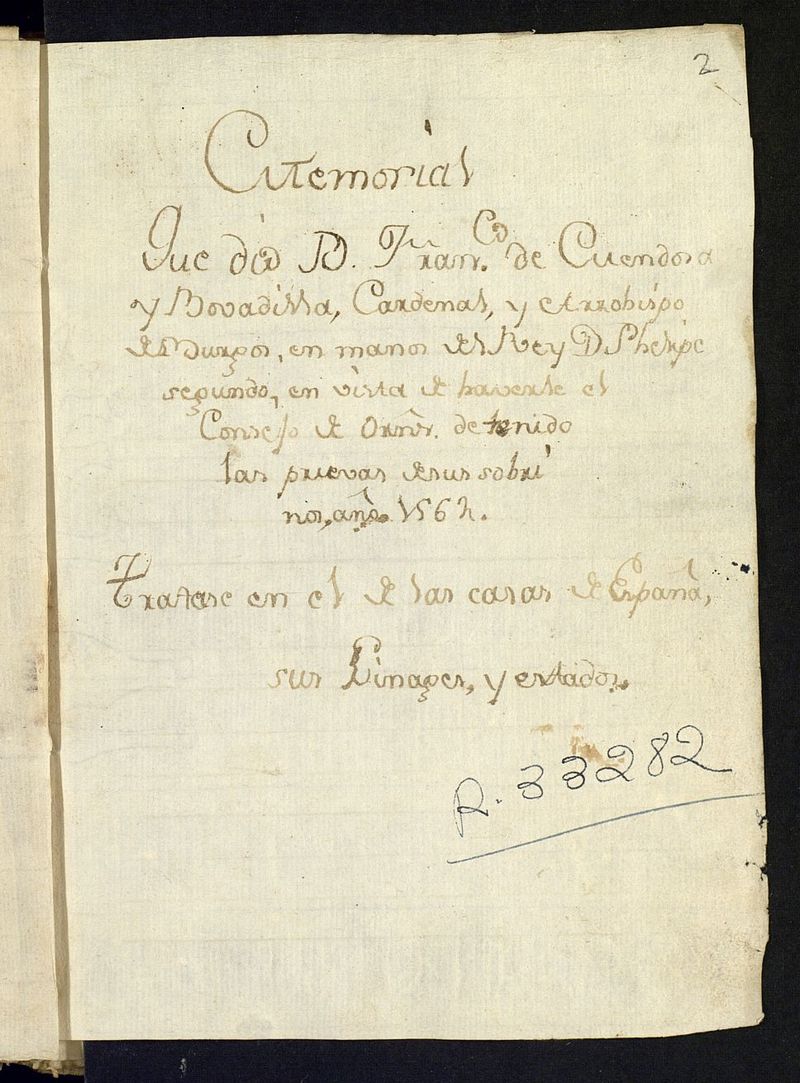 2
Memorial
Que dió D. Fran.co de Mendosa
y Bovadilla, Cardenal, y Arzobispo
de Burgos, en manos del Rey D Phelipe
segundo, en vista de haverle el
Consejo de Ornes. detenido
las pruevas de sus sobri
nos, año 1562.
Tratase en el de las casas de España,
sus Linages, y estados.
R. 33282